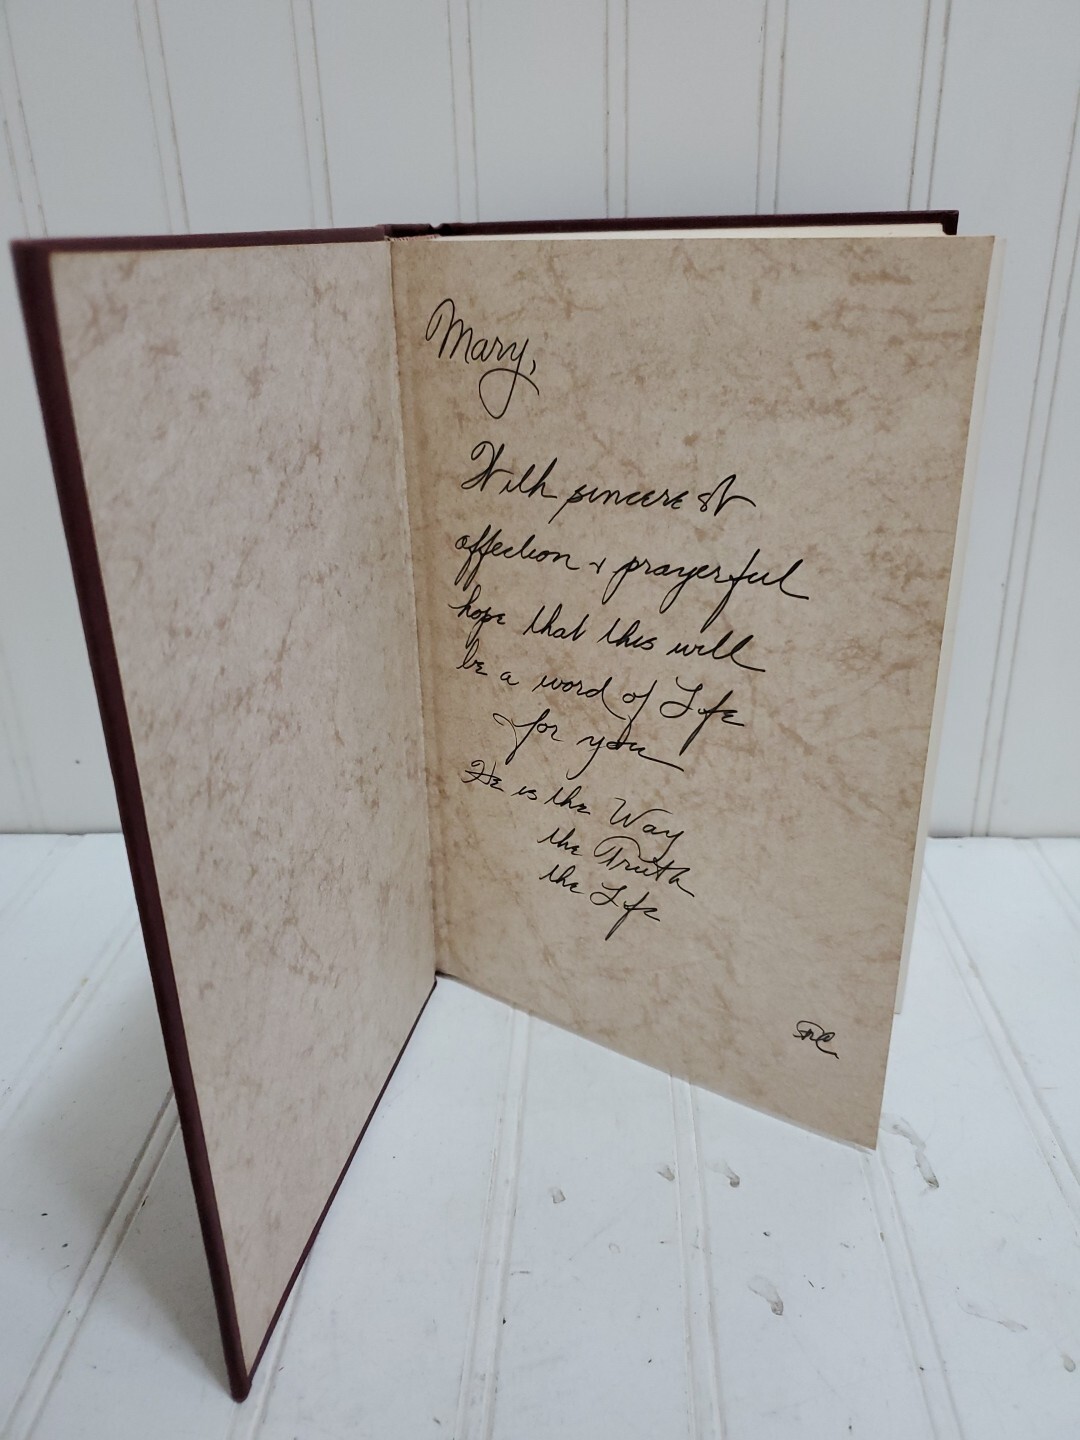 Mary,
With sincerest
affection & prayerful
hope that this will
be a word of Life
for you
He is the Way
the Truth
the Life